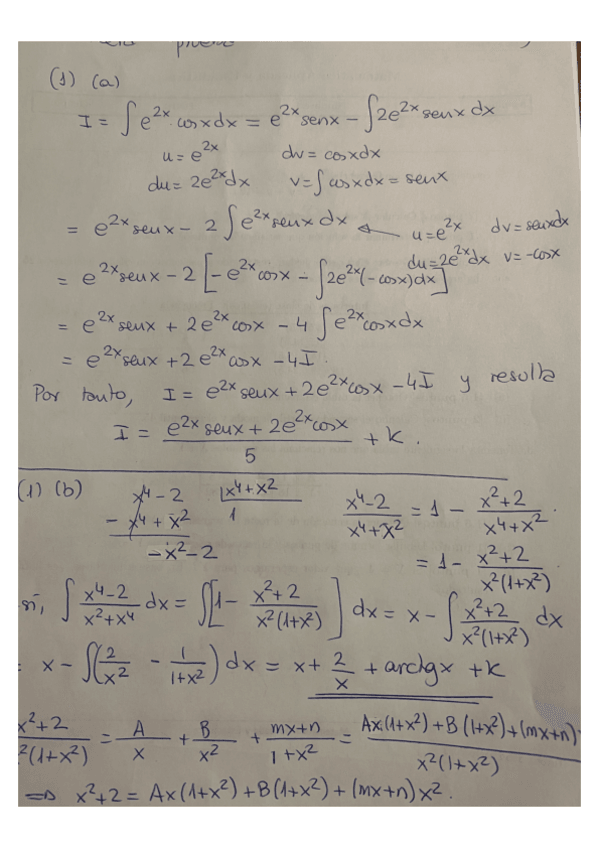 (1) (a)
I = ∫ e^{2x} cos x dx = e^{2x} sen x − ∫ 2e^{2x} sen x dx
u = e^{2x} dv = cos x dx
du = 2e^{2x} dx v = ∫ cos x dx = sen x
= e^{2x} sen x − 2 ∫ e^{2x} sen x dx ← u = e^{2x} dv = sen x dx
du = 2e^{2x} dx v = −cos x
= e^{2x} sen x − 2 [− e^{2x} cos x − ∫ 2e^{2x} (−cos x) dx]
= e^{2x} sen x + 2 e^{2x} cos x − 4 ∫ e^{2x} cos x dx
= e^{2x} sen x + 2 e^{2x} cos x − 4I.
Por tanto, I = e^{2x} sen x + 2e^{2x} cos x − 4I y resulta
I = (e^{2x} sen x + 2e^{2x} cos x)/5 + k.
(1) (b) x⁴ − 2 | x⁴ + x² (x⁴ − 2)/(x⁴ + x²) = 1 − (x² + 2)/(x⁴ + x²).
− x⁴ + x² 1
− x² − 2 = 1 − (x² + 2)/(x²(1 + x²))
sí, ∫ (x⁴ − 2)/(x² + x⁴) dx = ∫ [1 − (x² + 2)/(x²(1 + x²))] dx = x − ∫ (x² + 2)/(x²(1 + x²)) dx
= x − ∫ (2/x² − 1/(1 + x²)) dx = x + 2/x + arctg x + k
(x² + 2)/(x²(1 + x²)) = A/x + B/x² + (mx + n)/(1 + x²) = (Ax(1 + x²) + B(1 + x²) + (mx + n)/(x²(1 + x²))
⇒ x² + 2 = Ax(1 + x²) + B(1 + x²) + (mx + n) x².